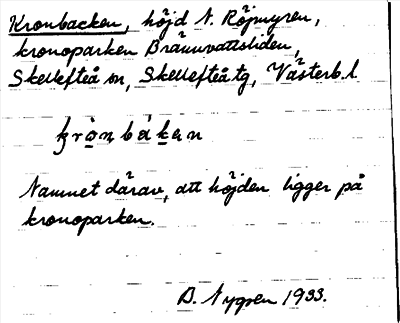 Kronbacken, höjd N. Röjmyren,
kronoparken Brännvattsliden,
Skellefteå sn, Skellefteå tg, Västerb. l.
krònbàkan
Namnet därav, att höjden ligger på
kronoparken.
B. Nygren 1933.